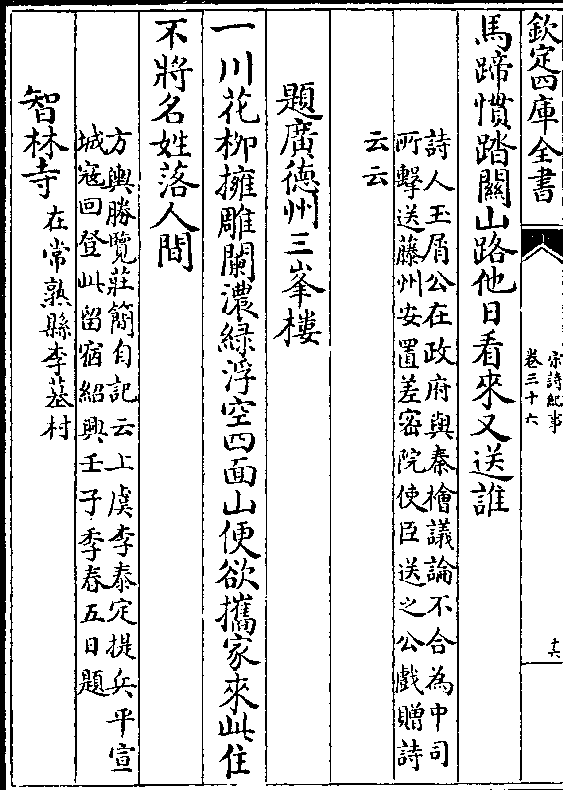 欽定四庫全書
宋詩紀事
卷三十六
十六
馬蹄慣踏關山路他日看來又送誰
詩人玉屑公在政府與秦檜議論不合為中司
所擊送藤州安置差密院使臣送之公戲贈詩
云云
題廣德州三峯樓
一川花柳擁雕闌濃緑浮空四面山便欲攜家來此住
不將名姓落人間
方輿勝覽莊簡自記云上虞李泰定提兵平宣
城寇回登此留宿紹興壬子季春五日題
智林寺
在常熟縣李墓村